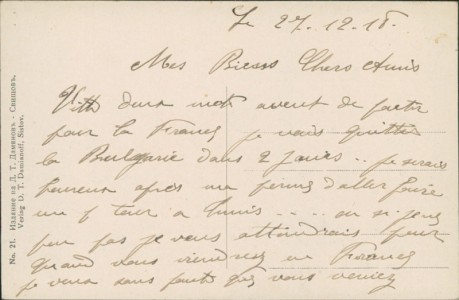 Le 27-12-18.
Mes Biens Chers Amis
Vitte deux mots avant de partir
pour la France je vais quitter
la Bulgarie dans 2 jours .. je serais
heureux après un permis d'aller faire
un tour a Tunis ..... ou si je
peu pas je vous attendrais pour
quand vous viendrez en France
je veux sans faute que vous veniez
No. 21. Издание на Д. Т. Дамяновъ - Свищовъ.
Verlag D. T. Damianoff, Sistov.